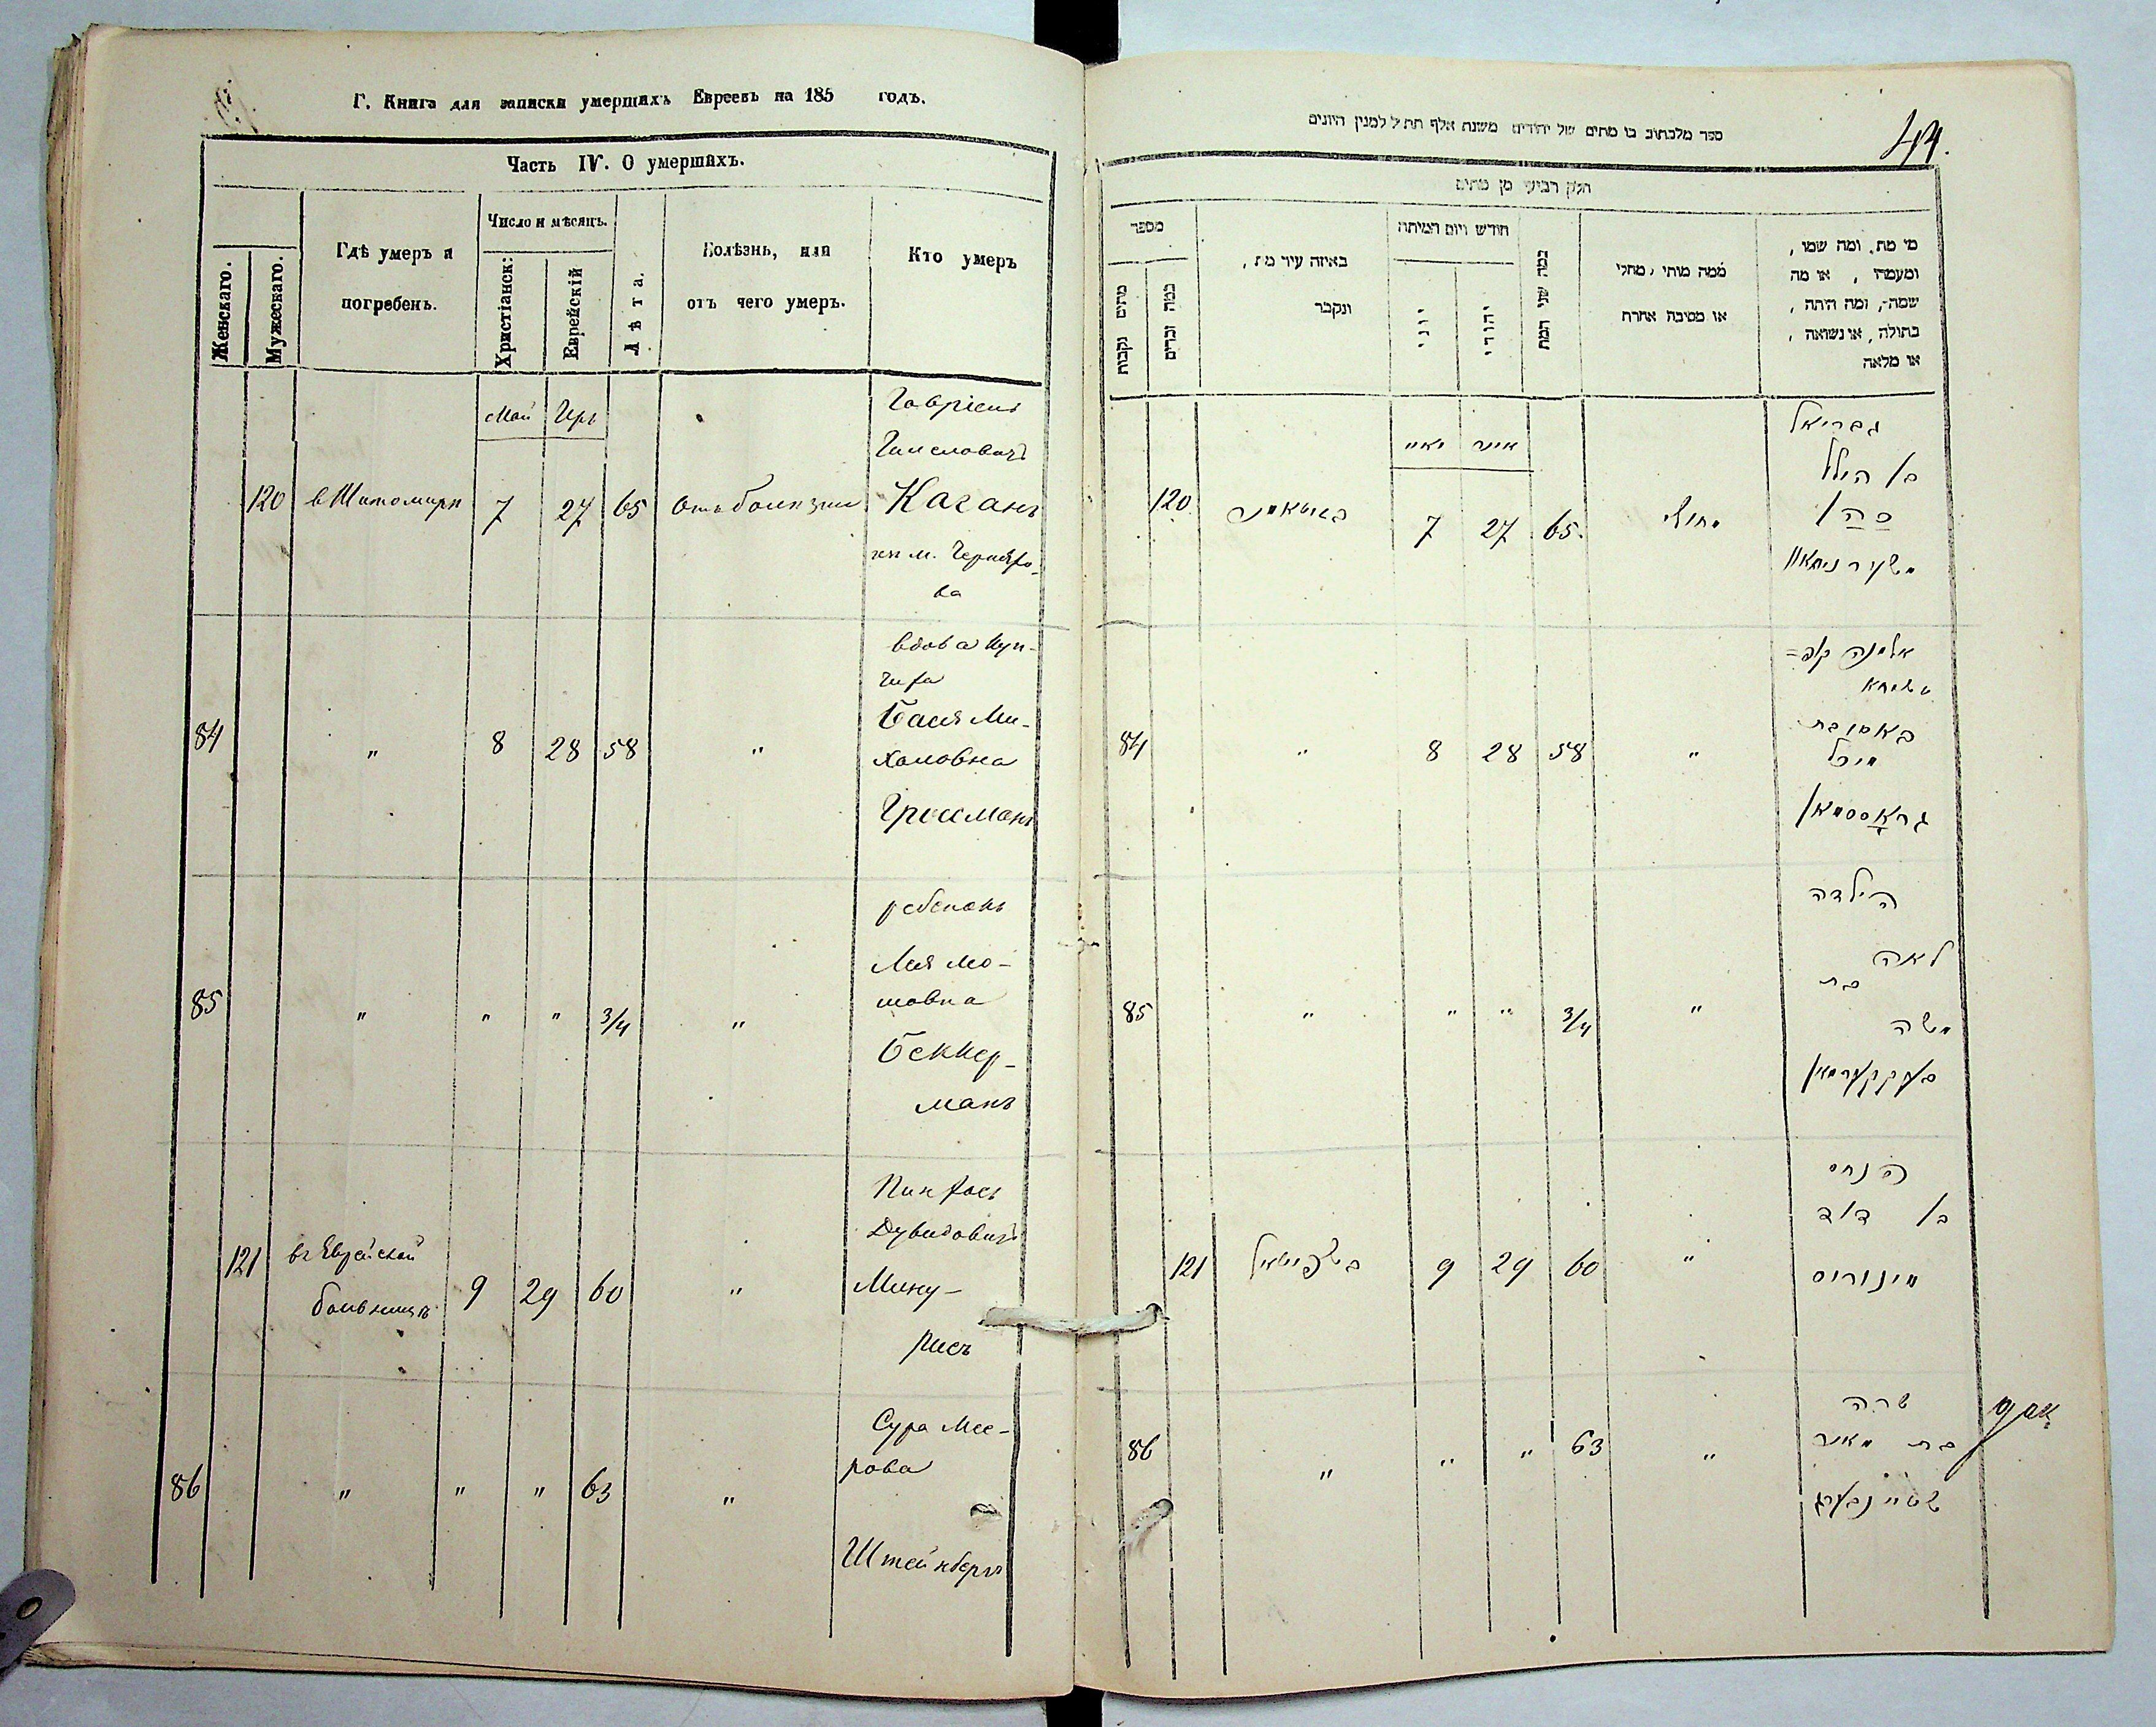 Г. Книга для записки умершихъ Евреевъ на 185 годъ.
Часть IV. О умершихъ.
Женскаго.
Мужескаго.
Гдѣ умеръ и
погребенъ.
Число и мѣсяцъ.
Христіанск:
Еврейскій
Лѣта.
Болѣзнь, или
отъ чего умеръ.
Кто умеръ
Май
120 в Житомирѣ 7 27 65 Отъ болезни
Каганъ
вдова куп-
Бася Ми-
84 " 8 28 58 "
халовна
Гросманъ
ребенокъ
Лея Мо-
шовна
85 " " " 3/4 "
Беккер-
манъ
Пинхосъ
Дувидовичъ
121 въ Еврейской
больницѣ 9 29 60 "
Мину-
рисъ
Сура Мее-
рова
86 " " " 63 "
Штейнбергъ
44.
ספר מלכתוב בו מתים של יהודים משנת אלף תת"ל למנין היונים
חלק רביעי מן מתים
מספר
מתים נקבות
כמה זכרים
באיזה עיר מת,
ונקבר
חודש ויום המיתה
יוני
יהודי
כמה שני המת
ממה מותי, מחלי
או מסיבה אחרת
מי מת, ומה שמו,
ומעמדו, או מה
שמה, ומה היתה,
בתולה, או נשואה,
או מלאה
גבריאל
בן הילל
מאיי אייר
כהן
120 7 27 65
אלמנה
84 " 8 28 58 "
מיכל
גראסמאן
הילדה
לאה
בת
משה
85 " " " 3/4 "
בעקקערמאן
פנחס
בן דוד
121 9 29 60 "
מינוריס
שרה
בת מאיר
86 " " " 63 "
שטיינבערג